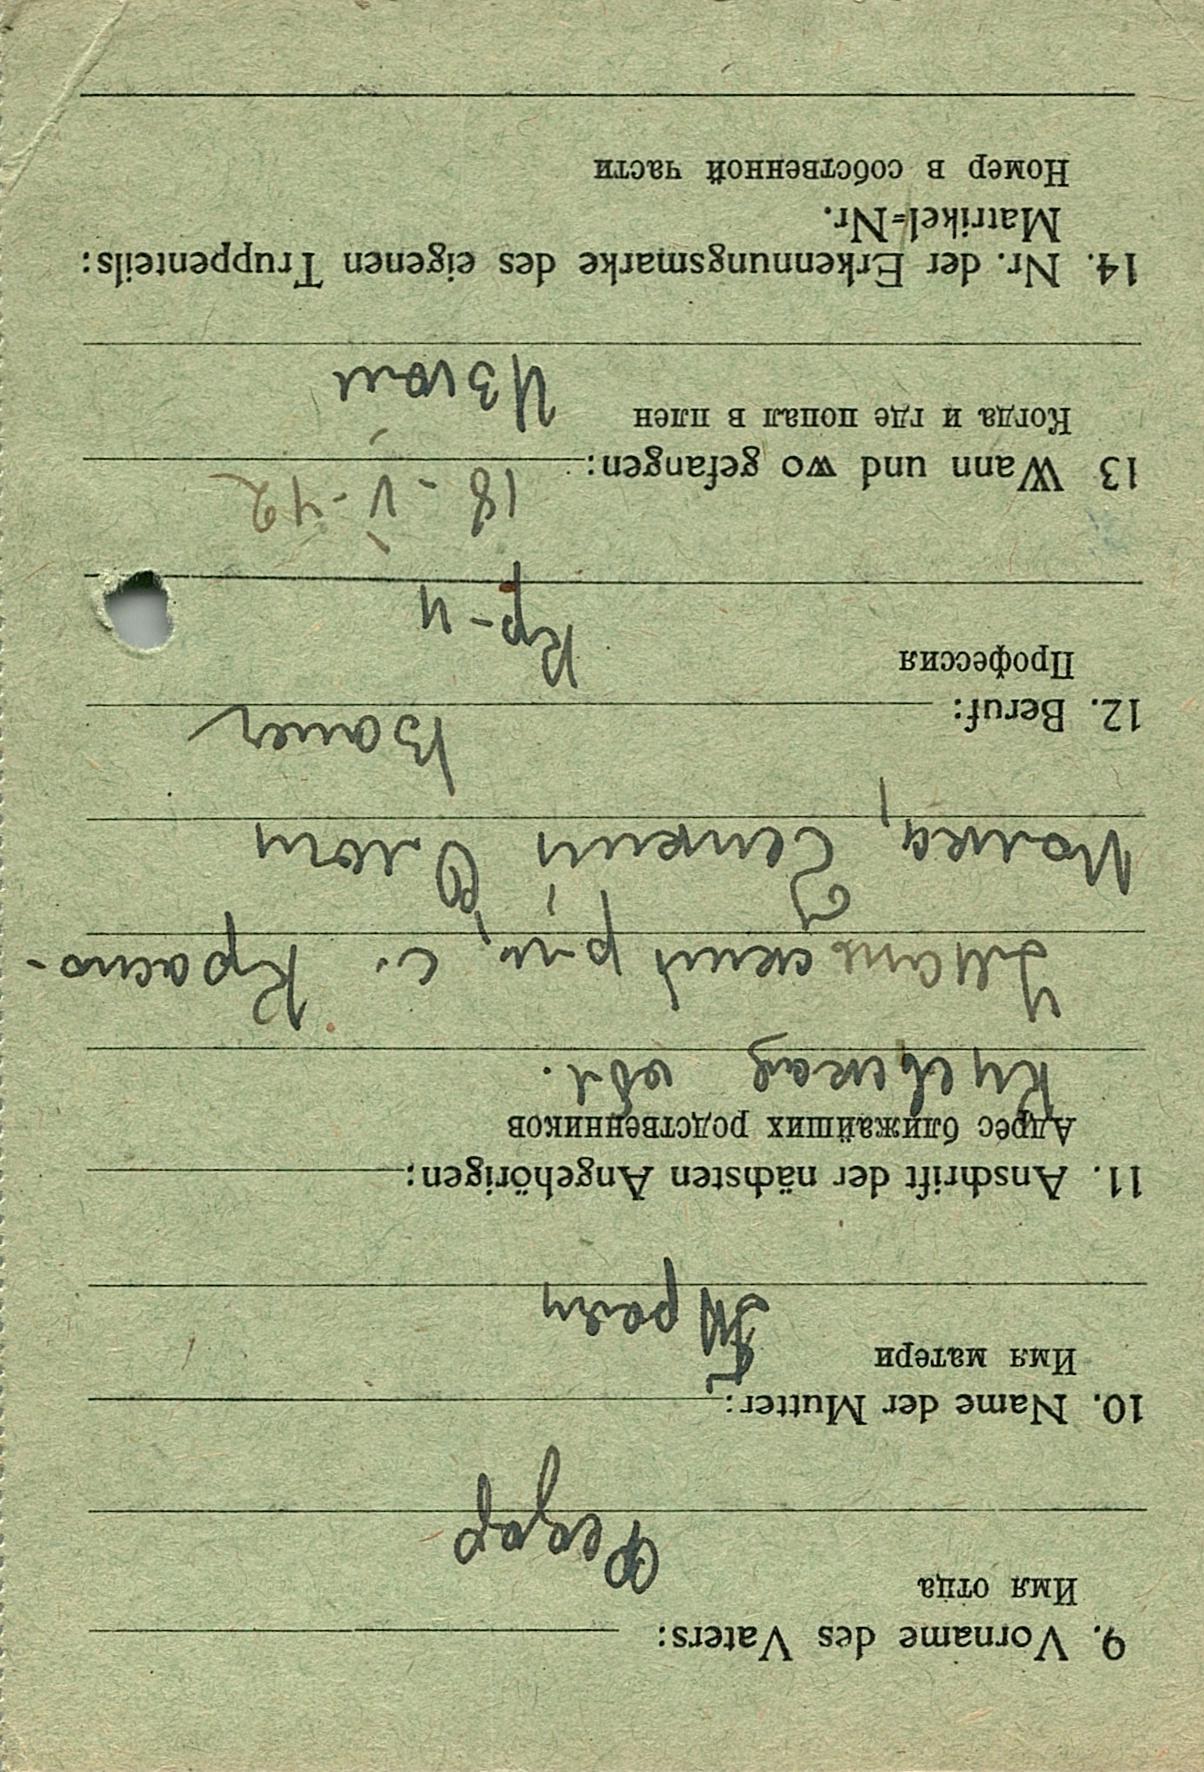 9. Vorname des Vaters:
Имя отца
Федор
10. Name der Mutter:
Имя матери
11. Anschrift der nächsten Angehörigen:
Адрес ближайших родственников
Киевская обл.
Уманский р-н, с. Красно-
полка,
12. Beruf: Bauer
Профессия
Кр-н
13 Wann und wo gefangen: 18-V-42
Когда и где попал в плен
Изюм
14. Nr. der Erkennungsmarke des eigenen Truppenteils:
Matrikel=Nr.
Номер в собственной части